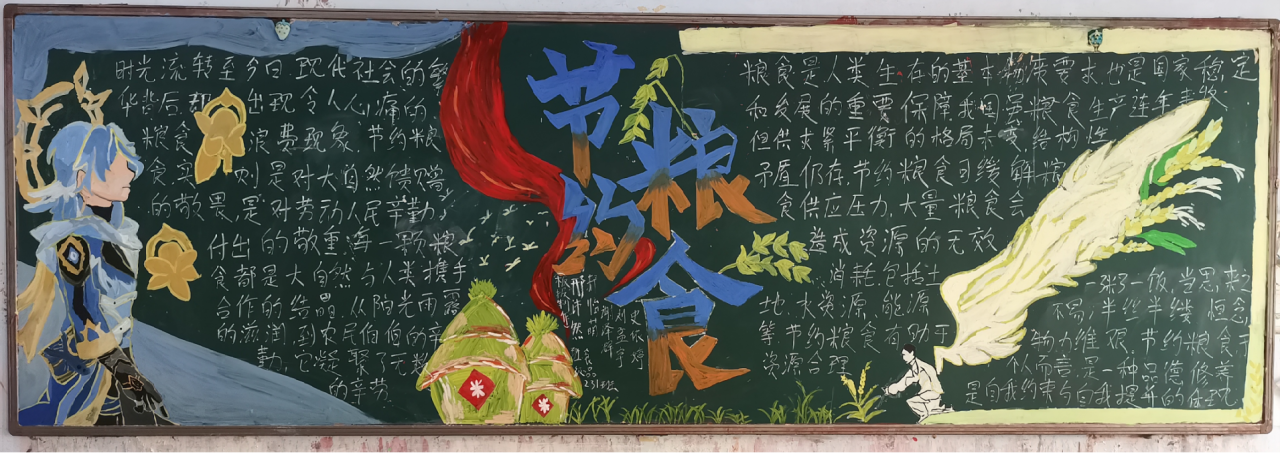 时光流转至今日,现代社会的繁
华背后却出现令人心痛的
粮食浪费现象,节约粮
食,实则是对大自然馈赠
的敬畏,是对劳动人民辛勤
付出的敬重,每一颗粮
食都是大自然与人类携手
合作的结晶,从阳光雨露
的滋润,到农民伯伯的辛
勤,它凝聚了无数
的辛劳
节约
粮食
粮食是人类生存的基本物质要求,也是国家稳定
和发展的重要保障我国虽粮食生产连年丰收
但供求紧平衡的格局未变,结构性
矛盾仍存,节约粮食可缓解粮
食供应压力,大量粮食会
造成资源的无效
消耗,包括土
地,水资源,能源
等,节约粮食有助于
资源合理
一粥一饭,当思来之
不易,半丝半缕,恒念
物力维艰,节约粮食于
个人而言是一种品德修养
是自我约束与自我提升的体现